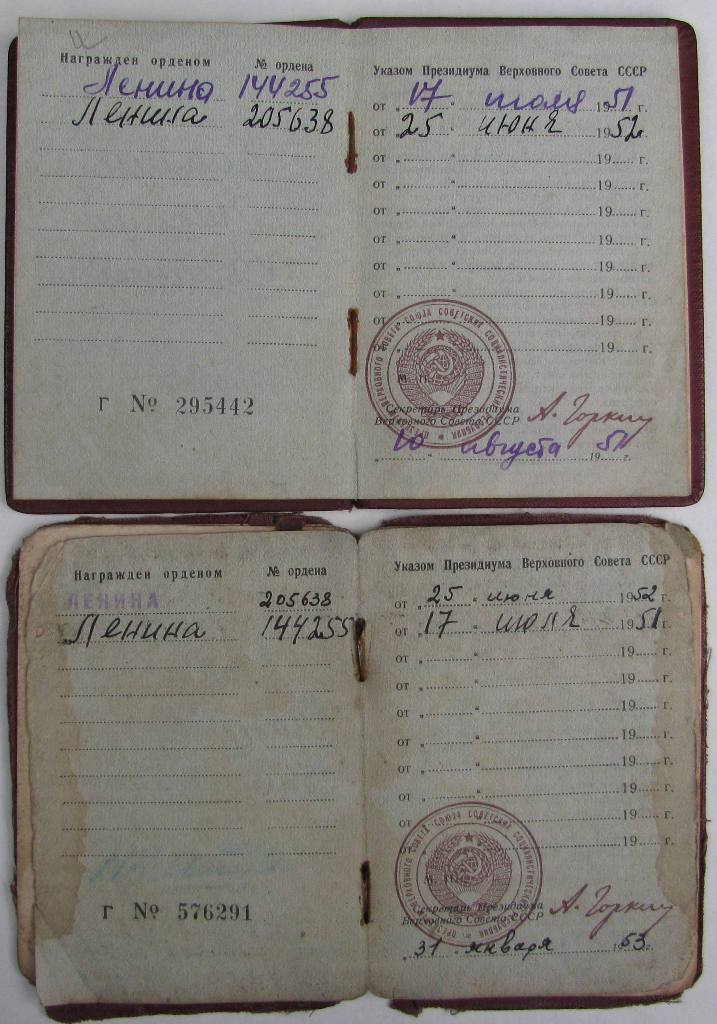 Награжден орденом № ордена
Ленина 144255
Ленина 205638
Г № 295442
Указом Президиума Верховного Совета СССР
от „ 17 “ июля 1951 г.
от „ 25 “ июня 1952 г.
от „ “ 19 г.
от „ “ 19 г.
от „ “ 19 г.
от „ “ 19 г.
от „ “ 19 г.
от „ “ 19 г.
от „ “ 19 г.
„ “ 19 г.
М. П.
Секретарь Президиума
Верховного Совета СССР А. Горкин
„ 10 августа 1951 г.
Награжден орденом № ордена
ЛЕНИНА 205638
Ленина 144255
Г № 576291
Указом Президиума Верховного Совета СССР
от „ 25 “ июня 1952 г.
от „ 17 “ июля 1951 г.
от „ “ 19 г.
от „ “ 19 г.
от „ “ 19 г.
от „ “ 19 г.
от „ “ 19 г.
от „ “ 19 г.
от „ “ 19 г.
„ “ 19 г.
Секретарь Президиума
Верховного Совета СССР А. Горкин
„ 31 января 1953 г.